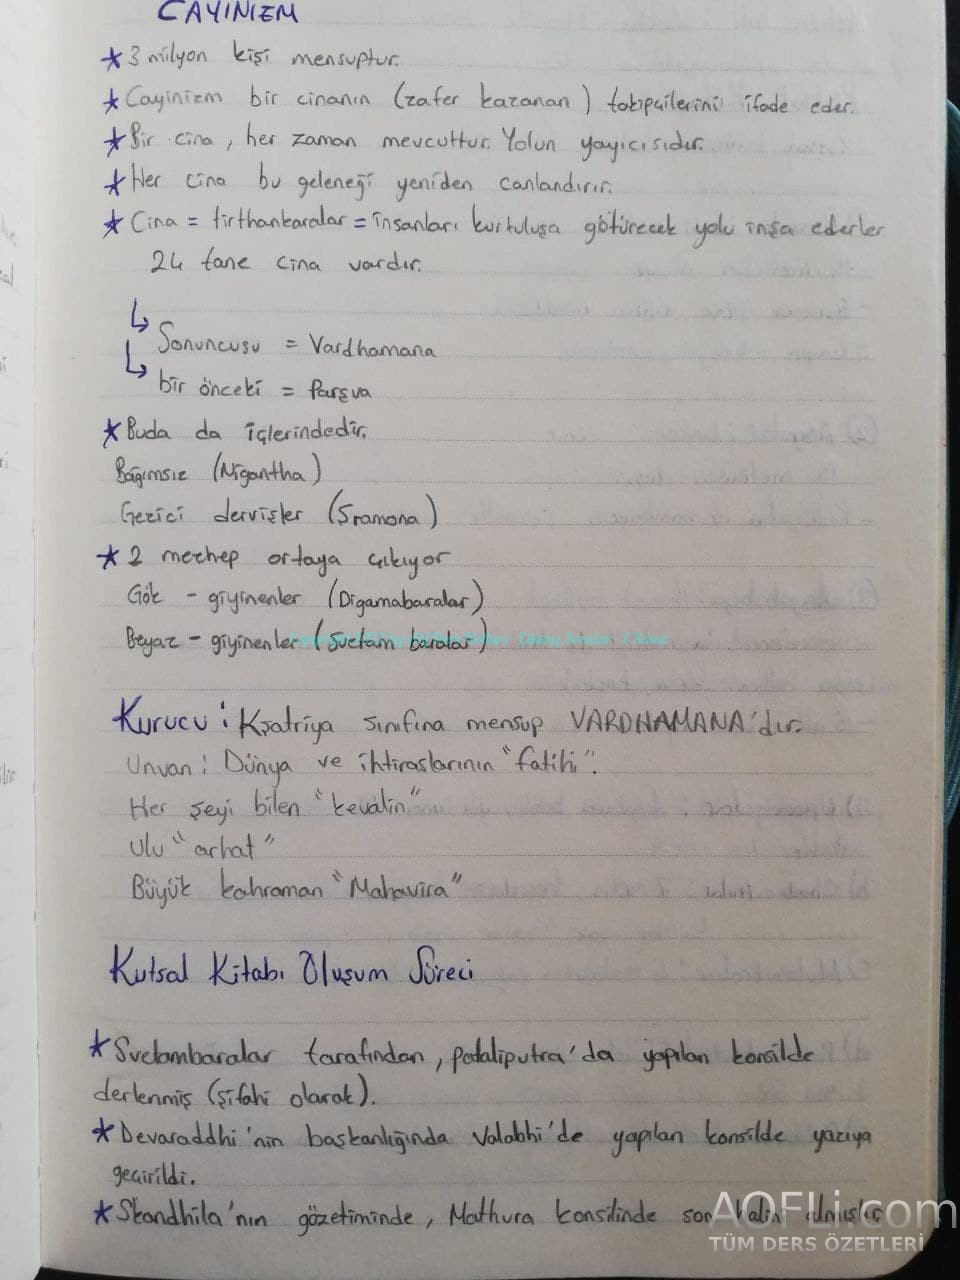 CAYİNİZM
★ 3 milyon kişi mensuptur.
★ Cayinizm bir cinanın (zafer kazanan) takipçilerini ifade eder.
★ Bir cina, her zaman mevcuttur. Yolun yayıcısıdır.
★ Her cina bu geleneği yeniden canlandırır.
★ Cina = tirthankaralar = insanları kurtuluşa götürecek yolu inşa ederler
24 tane cina vardır.
↳ Sonuncusu = Vardhamana
↳ bir önceki = Parşva
★ Buda da içlerindedir.
Bağımsız (Nigantha)
Gezici dervişler (Sramana)
★ 2 mezhep ortaya çıkıyor
Gök - giyinenler (Digamabaralar)
Beyaz - giyinenler (Svetam baralar)
Kurucu : Kşatriya sınıfına mensup VARDHAMANA'dır.
Unvan : Dünya ve ihtiraslarının "fatihi".
Her şeyi bilen "kevalin"
Ulu "arhat"
Büyük kahraman "Mahavira"
Kutsal Kitabı Oluşum Süreci
★ Svetambaralar tarafından, pataliputra'da yapılan konsilde
derlenmiş (şifahi olarak).
★ Devaraddhi'nin başkanlığında Valabhi'de yapılan konsilde yazıya
geçirildi.
★ Skandhila'nın gözetiminde, Mathura konsilinde son halini almıştır
AOFLi.com
TÜM DERS ÖZETLERİ